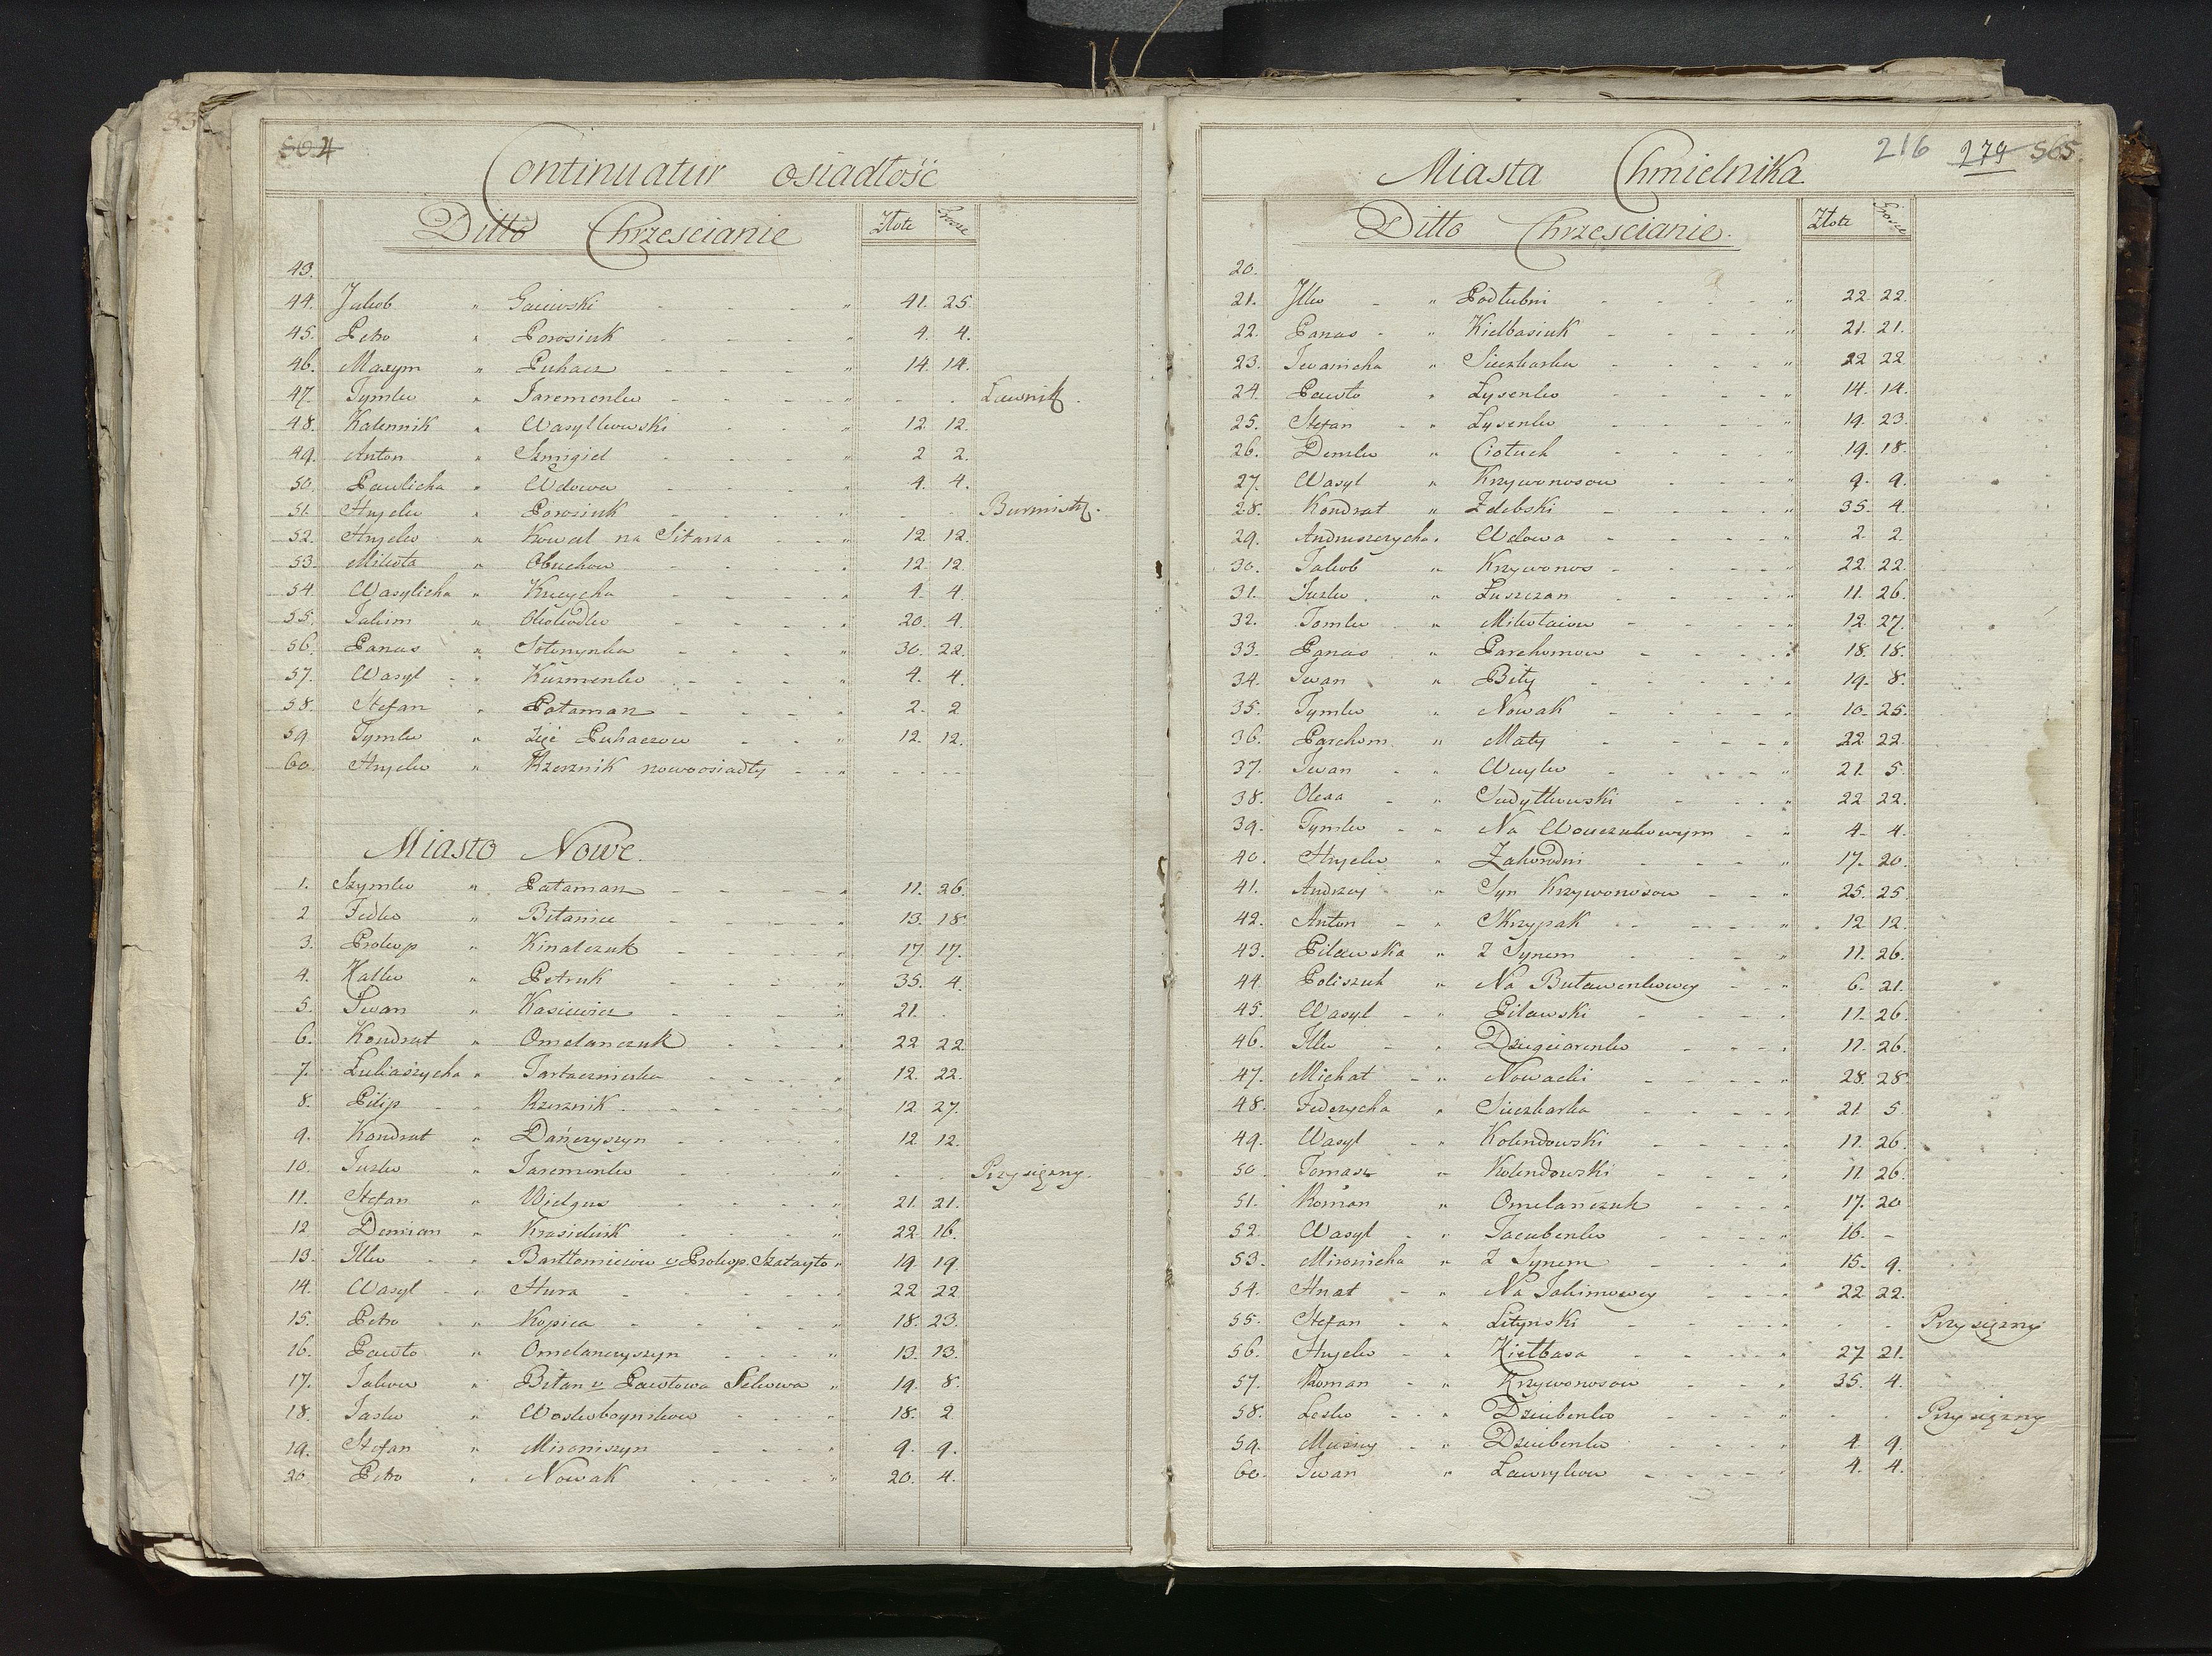 564
Continuatur osiadłość
Ditto Chrzescianie Złote Grosze
43.
44. Jakob " Gaiewski " 41. 25.
45. Petro " Porosiuk " 4. 4.
46. Maxym " Puhacz " 14. 14.
47. Tymko " Jaremenko " - - Ławnik.
48. Kalennik " Wasylkowski " 12. 12.
49. Anton " Szmigiel " 2 2.
50. Paulicha " Wdowa " 4. 4.
51. Hryćko " Porosiuk - - Burmistrz.
52. Hryćko " Kowal na Sitarza " 12. 12.
53. Mikołа " Obuchow " 12. 12.
54. Wasylicha " Krucycha " 4. 4.
55. Jakim " Okołodko " 20. 4.
56. Panas " Sołonynka " 30. 22.
57. Wasyl " Kuzmenko " 4. 4.
58. Stefan " Pataman " 2. 2
59. Tymko " Zięć Puhaczow " 12. 12.
60. Hryćko " Rzeznik nowoosiadły " - -
Miasto Nowe.
1. Szymko " Pataman " 11. 26.
2 Fedko " Bitanice " 13. 18.
3. Prokop " Kinalczuk " 17. 17.
4. Hasko " Petruk " 35. 4.
5. Iwan " Kasiewicz " 21. .
6. Kondrat " Omelanczuk " 22 22.
7. Łukiaszycha " Tartaczniczka " 12. 22.
8. Pilip " Rzeznik " 12. 27.
9. Kondrat " Dańczyszyn " 12. 12.
10. Jusko " Jaremenko " - - Przysięzny.
11. Stefan " Wielgus " 21. 21.
12 Demian " Krasieluk " 22. 16.
13. Ilko " Bartłomieiow y Prokop Szatayło " 19. 19.
14. Wasyl " Hura " 22 22
15. Petro " Kopica " 18. 23.
16. Pawło " Omelanczyszyn " 13. 13.
17. Jakow " Bitan y Pawłowa Sielowa " 19. 8.
18. Jasko " Woskoboynikow " 18. 2
19. Stefan " Mironiszyn " 9. 9.
20. Petro " Nowak " 20. 4.
216 274 565.
Miasta Chmielnika
Ditto Chrzescianie. Złote Grosze
20.
21. Ilko " Podłubni " 22. 22.
22. Panas " Kiełbasiuk " 21. 21.
23. Iwanicha " Sieczkarka " 22 22
24. Pawło " Łysenko " 14. 14.
25. Stefan " Łysenko " 19. 23.
26. Demko " Ciołuch " 19. 18.
27. Wasyl " Krzywonosow " 9. 9.
28. Kondrat " Zelebski " 35. 4.
29. Andruszczycha " Wdowa " 2. 2.
30. Jakob " Krzywonos " 22. 22.
31. Jusko " Łuszczan " 11. 26.
32. Tomko " Mikołaiow " 12. 27.
33. Panas " Parchomow " 18. 18.
34. Iwan " Biły " 19. 8.
35. Tymko " Nowak " 10. 25.
36. Parchom " Mały " 22. 22.
37. Iwan " Wuyko " 21. 5.
38. Olexa " Sudyłkowski " 22 22.
39. Tymko " Na Wowczukowym " 4. 4.
40. Hryćko " Zahorodni " 17. 20.
41. Andrzey " Syn Krzywonosow " 25. 25.
42. Anton " Skrzypak " 12. 12.
43. Pilawska " z Synem 11. 26.
44. Poliszuk " Na Buławenkowey " 6. 21.
45. Wasyl " Pilawski " 11. 26.
46. Ilko " Dziegciarenko " 11. 26.
47. Michał " Nowacki " 28. 28.
48. Fedczycha " Sieczkarka " 21. 5.
49. Wasyl " Kolendowski " 11. 26.
50. Tomasz " Kolendowski " 11. 26.
51. Roman " Omelanczuk " 17. 20
52. Wasyl " Jacubenko " 16. -
53. Mironicha " z Synem " 15. 9.
54. Hnat " Na Jakimowey " 22 22.
55. Stefan " Lityński " - - Przysięzny
56. Hryćko " Kiełbasa " 27. 21.
57. Roman " Krzywonosow " 35. 4.
58. Lesko " Dziubenko " - - Przysięzny
59. Musiy " Dziubenko " 4. 9.
60. Iwan " Ławrykow " 4. 4.